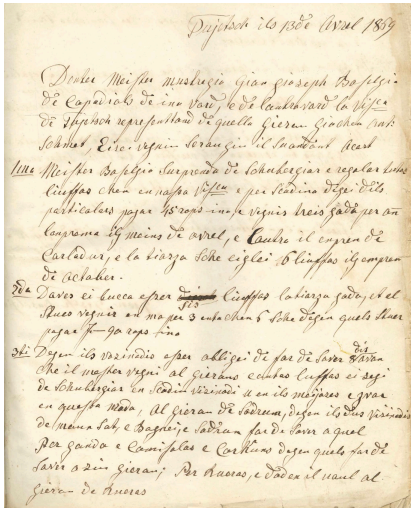 Tujetsch ils 13de Avrel 1859
Denter Meister mustregia Gian Gioseph Baselgia
de Capadials de ina vard, e de lautra vard la
de Tujetsch representond de quella Gieran Giachen Ant:
Schmet, Eisei vegniu il suandont Acort
1mo Meister Baselgia Surprenda de Schubergiar e regolar tutas
liuffas chen en nossa e per Scadina degei dils
particolars pagar 45 raps ina, e vegnir treis gadas per on
L'amprema ilg meins de avrel, e l'autra il entschen de
e la tiarza Sche eiglei liuffas ilg
de October.
2do Daves ei bucca esser liuffas la tiarza gada, et el
Stues vegnir en per 3 entochen 6 Sche degen quels Stuer
pagar 90 raps ina
3zi Degen ils vizinadis esser obligei de far de Saver dis avon
che il master vegni al gieraus contas liuffas ei segi
de Schubergiar en Scadin Vizinadi u en ils meljers e zvar
en questa moda, Al gieran de Sadrum, degen ils dus Vizinadis
de e Sadrum far de Saver a quel
Per Gonda e Camischolas e degen quels far de
Saver a ziu gieran; Per Rueras, e dadens il uaul al
gieran de Rueras